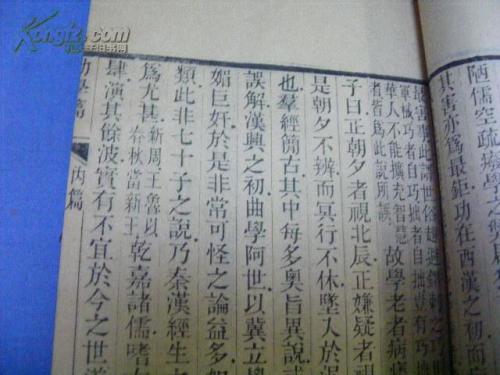 陋儒空疏
其害亦爲最鉅功在西漢之初而
華人不能擴充智慧
者皆爲此說所誤
故學老者病痿
子曰正朝夕者視北辰正嫌疑者視
是朝夕不辨而冥行不休墜入於泥
也羣經簡古其中每多奧旨異說或
誤解漢興之初曲學阿世以冀立學
媚巨奸於是非常可怪之論益多如
類此非七十子之說乃秦漢經生
爲尤甚
新周王魯以
春秋當新王
乾嘉諸儒嗜
肆演其餘波實有不宜於今之世道
勸學篇
內篇
Kongfz.com